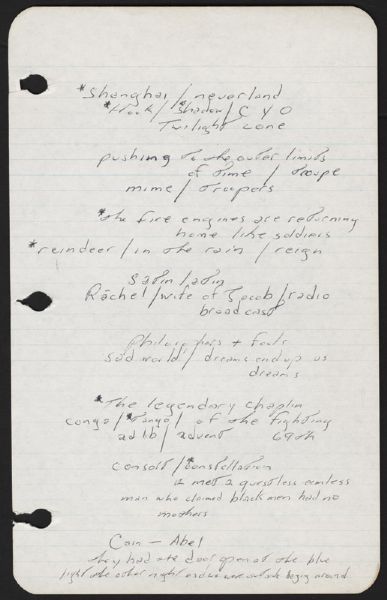 *Shanghai / neverland
*Hook / *shadow / C Y O
Twilight Zone
pushing to the outer limits
of time / troupe
mime / troupers
*the fire engines are returning
home like soldiers
*reindeer / in the rain / reign
Satin / Latin
Rachel / wife of Jacob / radio
broadcast
Philosophers + fools
sad world / dreams end up us
dreams
*The legendary chaplin
congo / *tango / of the fighting
ad lib / advent 69th
consort / *constellation
I met a guestless armless
man who claimed black men had no
mothers
Cain — Abel
they had the door open at the blue
light the other night and we were outside begging around